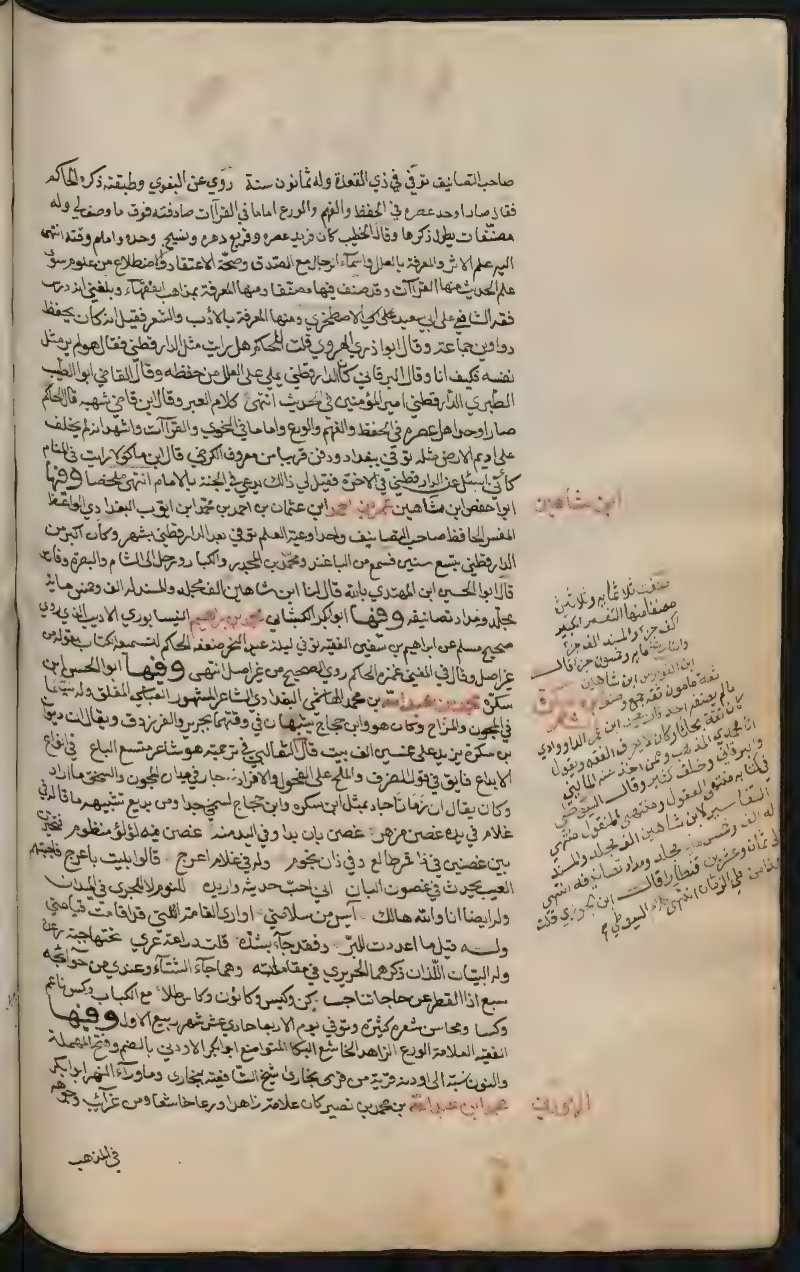 صاحب التصانيف توفي في ذي القعدة وله ثمانون سنة روى عن البغوي وطبقته ذكره الحاكم
فقال صار اوحد عصره في الحفظ والفهم والورع اماما في القراآت صادفته فوق ما وصف لي وله
مصنفات يطول ذكرها وقال الخطيب كان فريد عصره وقريع دهره ونسيج وحده وامام وقته انتهى
اليه علم الاثر والمعرفة بالعلل واسماء الرجال مع الصدق وصحة الاعتقاد والاضطلاع من علوم سوى
علم الحديث منها القراآت وقد صنف فيها مصنفا ومنها المعرفة بمذاهب الفقهاء وبلغني انه درس
فقه الشافعي على ابي سعيد الاصطخري ومنها المعرفة بالادب والشعر فقيل انه كان يحفظ
دواوين جماعة وقال ابو ذر الهروي قلت للحاكم هل رايت مثل الدارقطني فقال هو لم ير مثل
نفسه فكيف انا وقال البرقاني كان الدارقطني يملي علي العلل من حفظه وقال القاضي ابو الطيب
الطبري الدارقطني امير المؤمنين في الحديث انتهى كلام العبر وقال ابن قاضي شهبه قال الحاكم
صار اوحد اهل عصره في الحفظ والفهم والورع واماما في النحو والقراآت واشهد انه لم يخلف
على اديم الارض مثله توفي ببغداد ودفن قريبا من معروف الكرخي قال ابن ماكولا رايت في المنام
كاني اسئل عن الدارقطني في الاخرة فقيل لي ذاك يدعى في الجنة بالامام انتهى ملخصا وفيها
ابو حفص ابن شاهين عمر بن احمد ابن عثمان بن احمد بن محمد ابن ايوب البغدادي الواعظ
المفسر الحافظ صاحب التصانيف واحد اوعية العلم توفي بعد الدارقطني بشهر وكان اكبر من
الدارقطني بتسع سنين فسمع من الباغندي ومحمد بن المجدر والكبار ورحل الى الشام والبصرة وفارس
قال ابو الحسين ابن المهتدي بالله قال لنا ابن شاهين
مجلد ومداد تصانيفه وفيها ابو بكر الكسائي محمد بن ابراهيم النيسابوري الاديب الذي روى
صحيح مسلم عن ابراهيم بن سفين الفقيه توفي ليلة عيد النحر ضعفه الحاكم لتسميعه الكتاب بقوله من
غير اصل وقال في المغني غمزه الحاكم روى الصحيح من غير اصل انتهى وفيها ابو الحسن ابن
سكرة محمد بن عبد الله بن محمد الهاشمي البغدادي الشاعر المشهور العباسي المفلق ولا سيما
في المجون والمزاح وكان هو وابن حجاج يشبهان في وقتهما بجرير والفرزدق ويقال ان ديوان
بن سكرة يزيد على خمسين الف بيت قال الثعالبي في ترجمته هو شاعر متسع الباع في انواع
الابداع فايق في قول الظرف والملح على الفحول والافراد جار في ميدان المجون والسخف ما اراد
وكان يقال ان زمانا جاد بمثل ابن سكرة وابن حجاج لسخي جدا ومن بديع تشبيهه ما قاله في
غلام في يده غصن مزهر غصن بان بدا وفي اليد منه غصن فيه لؤلؤ منظوم فتحيرت
بين غصنين في ذا قمر طالع وفي ذا نجوم وله في غلام اعرج قالوا بليت باعرج فاجبتهم
العيب يحدث في غصون البان اني احب حديثه واريده للنوم لا للجري في الميدان
وله ايضا انا والله هالك آيس من سلامتي او ارى القامة التي قد اقامت قيامتي
وله قيل ما اعددت للبرد فقد جآء بشده قلت دراعة عري تحتها جبة رعده
وله البيتان اللذان ذكرهما الحريري في مقاماته وهما جآء الشتآء وعندي من حوآئجه
سبع اذا القطر عن حاجاتنا حبسا كن وكيس وكانون وكاس طلا مع الكباب وكس ناعم
وكسا ومحاسن شعره كثيرة وتوفي يوم الاربعا حادي عشر شهر ربيع الاول وفيها
الفقيه العلامة الورع الزاهد الخاشع البكا المتواضع ابو بكر الاودني بالضم وفتح المهملة
والنون نسبة الى اودنة قرية من قرى بخارى شيخ الشافعية ببخارى وما ورآء النهر ابو بكر
محمد ابن عبد الله بن محمد بن نصير كان علامة زاهدا ورعا خاشعا ومن غرآئب وجوهه
في المذهب
ابن شاهين
صنفت ثلاثماية وثلاثين
مصنفا منها التفسير الكبير
الف جزء والمسند الف جزء
وخمسون جزء اقال
ابن شاهين
ثقة مامون
بن سكرة
الشاعر
الاودني